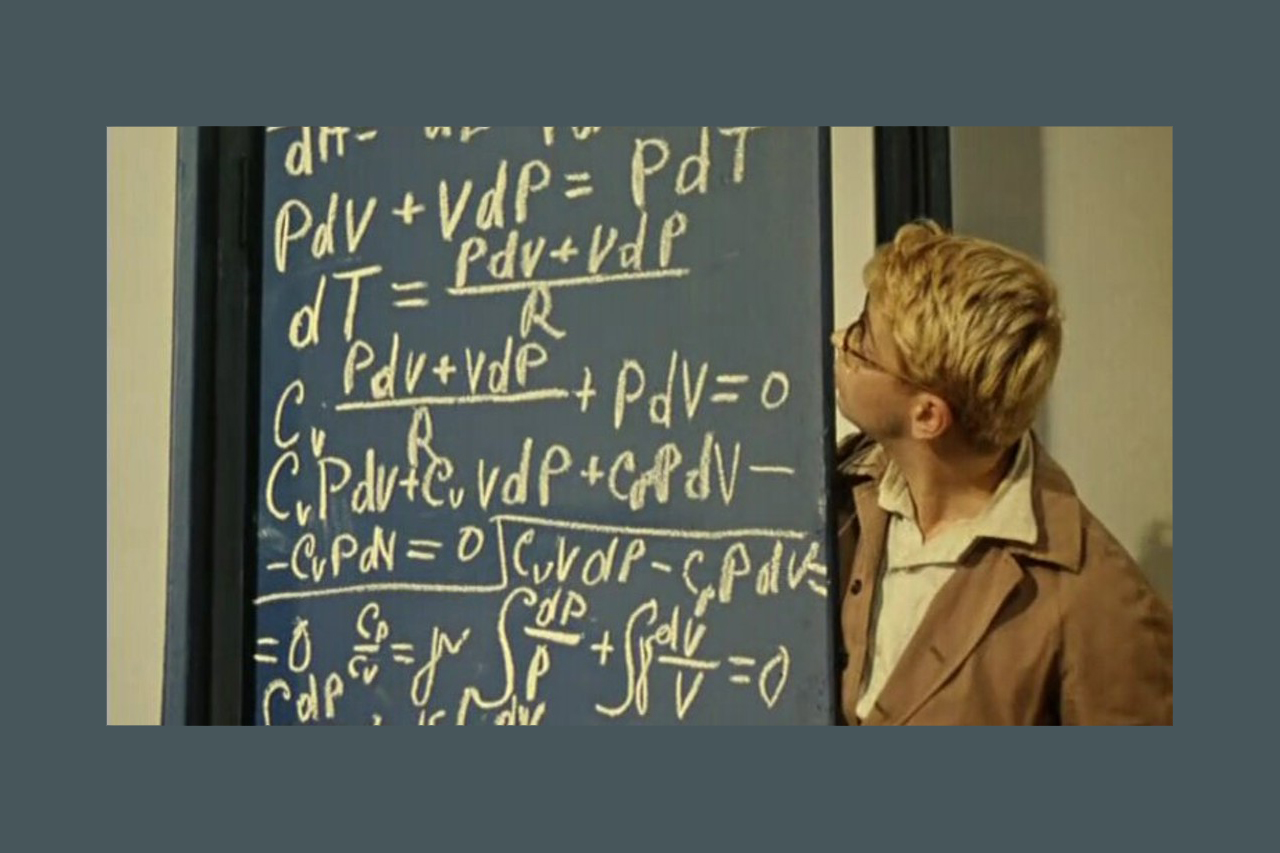 PdV + VdP = PdT
dT = PdV + VdP / R
Cv PdV + VdP / R + PdV = 0
CvPdV + CvVdP + CpPdV –
– CvPdV = 0 CvVdP – CpPdV =
= 0 Cp / Cv = γ ∫ dP / P + ∫ γ dV / V = 0